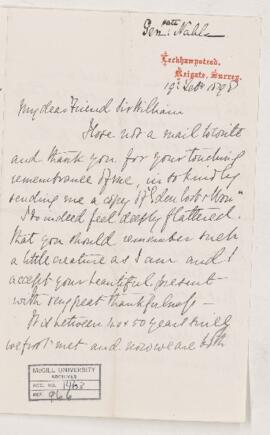 Genl Noble
Leckhampstead,
Reigate, Surrey.
19. Feb 1898
My dear Friend Sir William
I lose not a mail to write
and thank you for your touching
remembrance of me, in so kindly
sending me a copy of "Eden lost & Won"
I do indeed feel deeply flattered
that you should remember such
a little creature as I am and I
accept your beautiful present
with very great thankfulness —
It is between 40 & 50 years since
we first met and now we are both
McGILL UNIVERSITY
ARCHIVES
ACC. NO. 1463
REF.